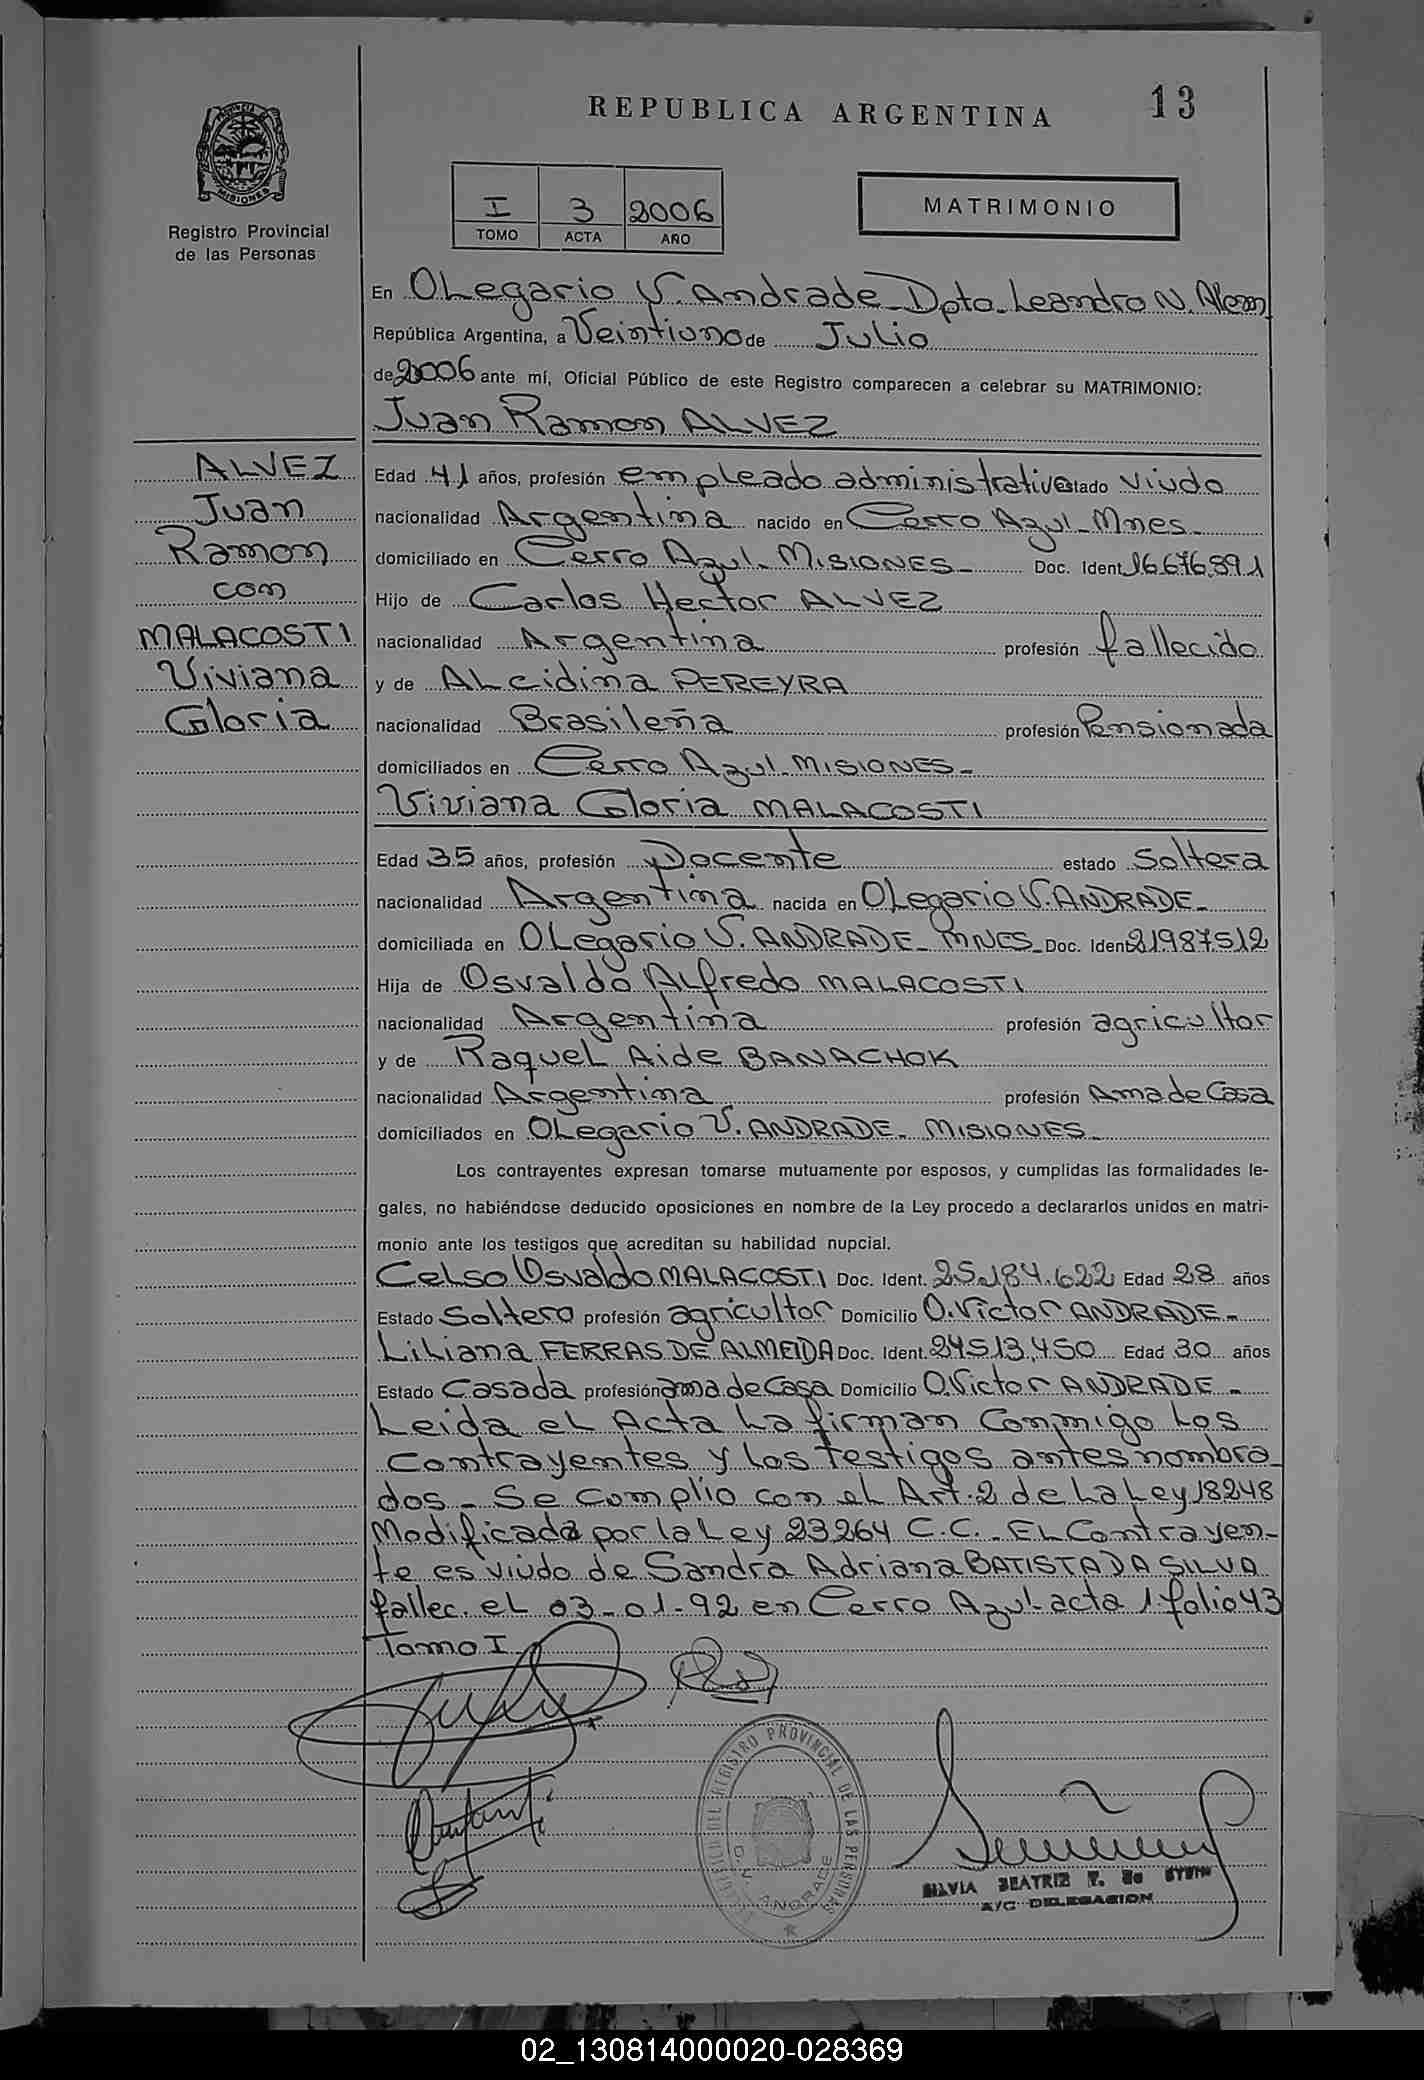 REPUBLICA ARGENTINA
13
PROVINCIA DE
MISIONES
Registro Provincial
de las Personas
I 3 2006
TOMO ACTA AÑO
MATRIMONIO
En OLegario V. Andrade_Dpto_Leandro N. Alem
República Argentina, a Veintiuno de Julio
de 2006 ante mí, Oficial Público de este Registro comparecen a celebrar su MATRIMONIO:
Juan Ramon ALVEZ
ALVEZ
Juan
Ramon
con
MALACOSTI
Viviana
Gloria
Edad 41 años, profesión empleado administrativo estado Viudo
nacionalidad Argentina nacido en Cerro Azul_Mnes_
domiciliado en Cerro Azul_MISIONES_ Doc. Ident. 16.676.891
Hijo de Carlos Hector ALVEZ
nacionalidad Argentina profesión fallecido
y de ALcidina PEREYRA
nacionalidad Brasileña profesión Pensionada
domiciliados en Cerro Azul_MISIONES_
Viviana Gloria MALACOSTI
Edad 35 años, profesión Docente estado Soltera
nacionalidad Argentina nacida en OLegario V. ANDRADE_
domiciliada en OLegario V. ANDRADE_ MNES_ Doc. Ident. 21.987.512
Hija de Osvaldo ALfredo MALACOSTI
nacionalidad Argentina profesión agricultor
y de RaqueL Aide BANACHOK
nacionalidad Argentina profesión Ama de Casa
domiciliados en OLegario V. ANDRADE_ MISIONES_
Los contrayentes expresan tomarse mutuamente por esposos, y cumplidas las formalidades le-
gales, no habiéndose deducido oposiciones en nombre de la Ley procedo a declararlos unidos en matri-
monio ante los testigos que acreditan su habilidad nupcial.
CeLso Osvaldo MALACOSTI Doc. Ident. 25.184.622 Edad 28 años
Estado Soltero profesión agricultor Domicilio O. Victor ANDRADE_
LiLiana FERRAS DE ALMEIDA Doc. Ident. 24513.450 Edad 30 años
Estado Casada profesión ama de Casa Domicilio O. Victor ANDRADE_
Leida eL Acta La firman Conmigo Los
Contrayentes y Los testigos antes nombra_
dos_ Se Cumplio con eL Art. 2 de La Ley 18248
Modificada por la Ley 23264 C.C._ EL Contrayen-
te es viudo de Sandra Adriana BATISTA DA SILVA
fallec. eL 03-01-92 en Cerro Azul_acta 1 folio 43
Tomo I
REGISTRO PROVINCIAL DE LAS PERSONAS
O. V. ANDRADE
SILVIA BEATRIZ F. de STEIN
A/C DELEGACION
02_130814000020-028369